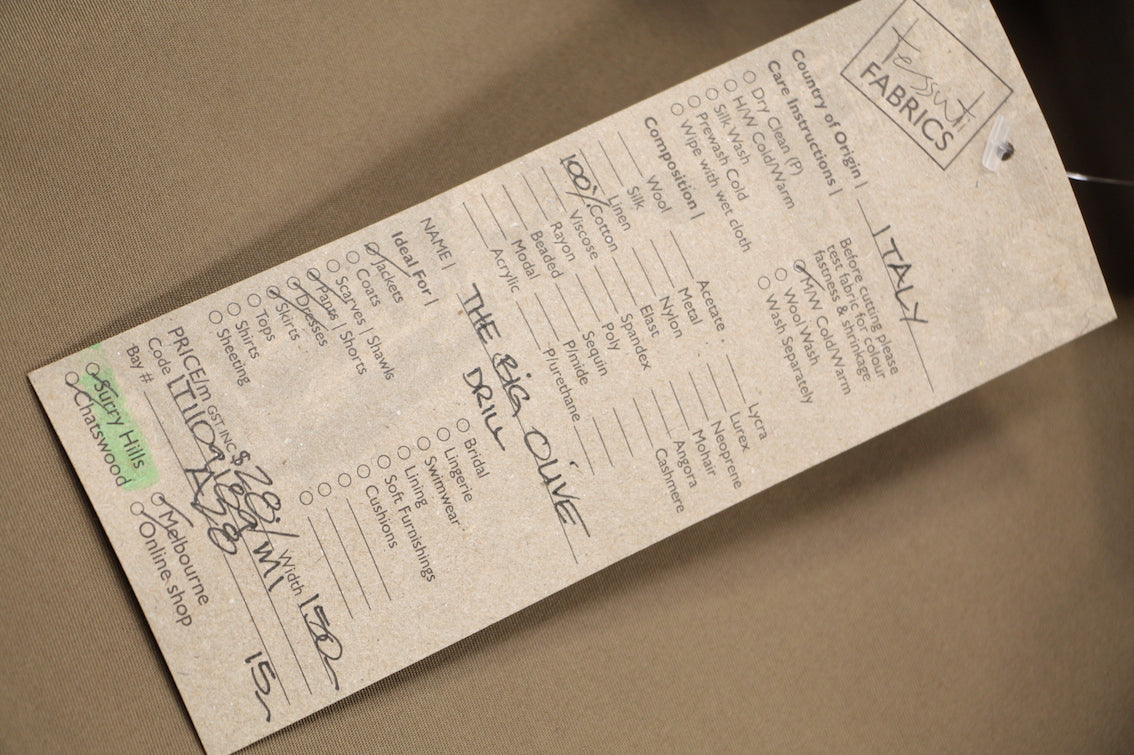 tessuti
FABRICS
Country of Origin | ITALY
Care Instructions |
Dry Clean (P)
H/W Cold/Warm
Silk Wash
Prewash Cold
Wipe with wet cloth
Before cutting please
test fabric for colour
fastness & shrinkage
M/W Cold/Warm
Wool Wash
Wash Separately
Composition |
Wool
Silk
Linen
100% Cotton
Viscose
Rayon
Beaded
Modal
Acrylic
Acetate
Metal
Nylon
Elast
Spandex
Poly
Sequin
P/mide
P/urethane
Lycra
Lurex
Neoprene
Mohair
Angora
Cashmere
NAME | THE BIG OLIVE
DRILL
Ideal For |
Jackets
Coats
Scarves | Shawls
Pants | Shorts
Dresses
Skirts
Tops
Shirts
Sheeting
Bridal
Lingerie
Swimwear
Lining
Soft Furnishings
Cushions
PRICE/m GST.INC $28 Width 150
Code
Bay #
Surry Hills
Chatswood
Melbourne
Online shop
15